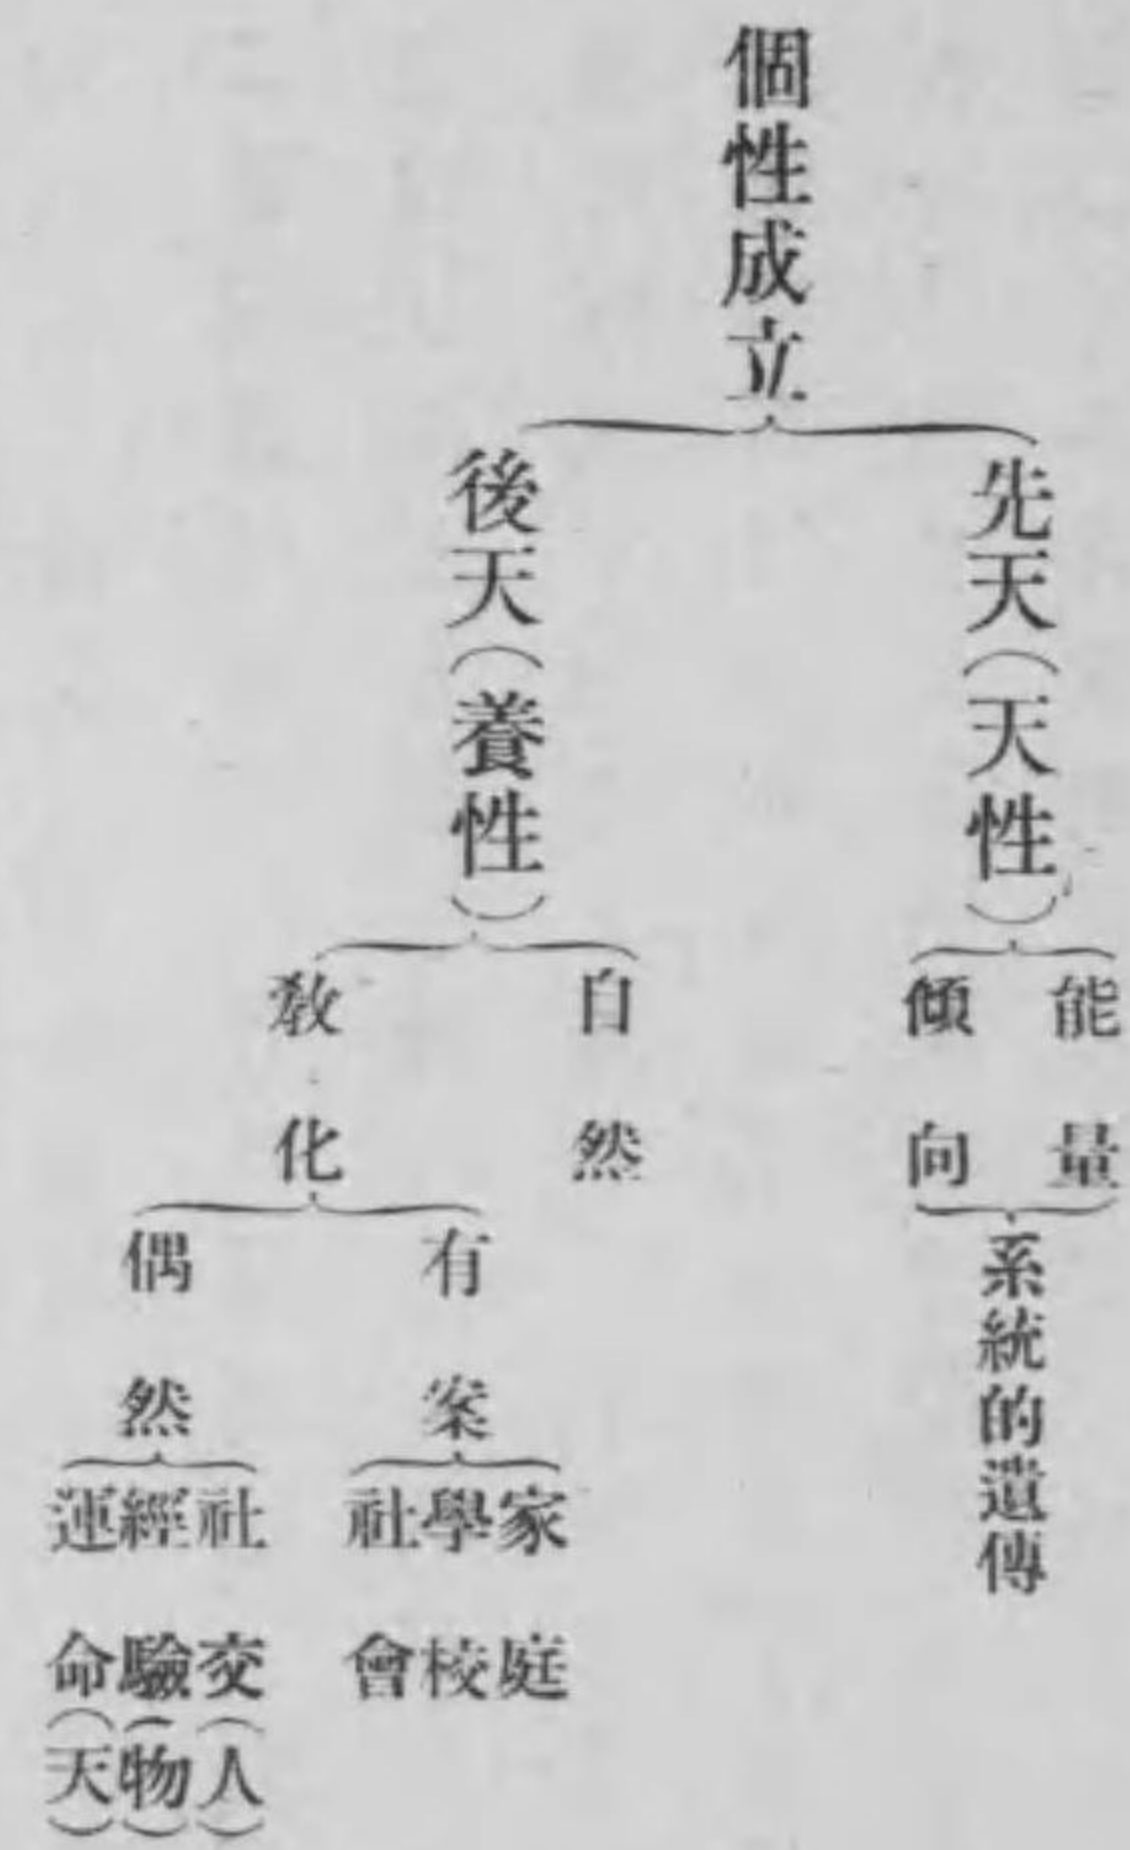 個性成立
先天(天性)
能量
傾向
系統的遺傳
後天(養性)
自然
敎化
有案
家庭
學校
社會
偶然
社交(人)
經驗(物)
運命(天)